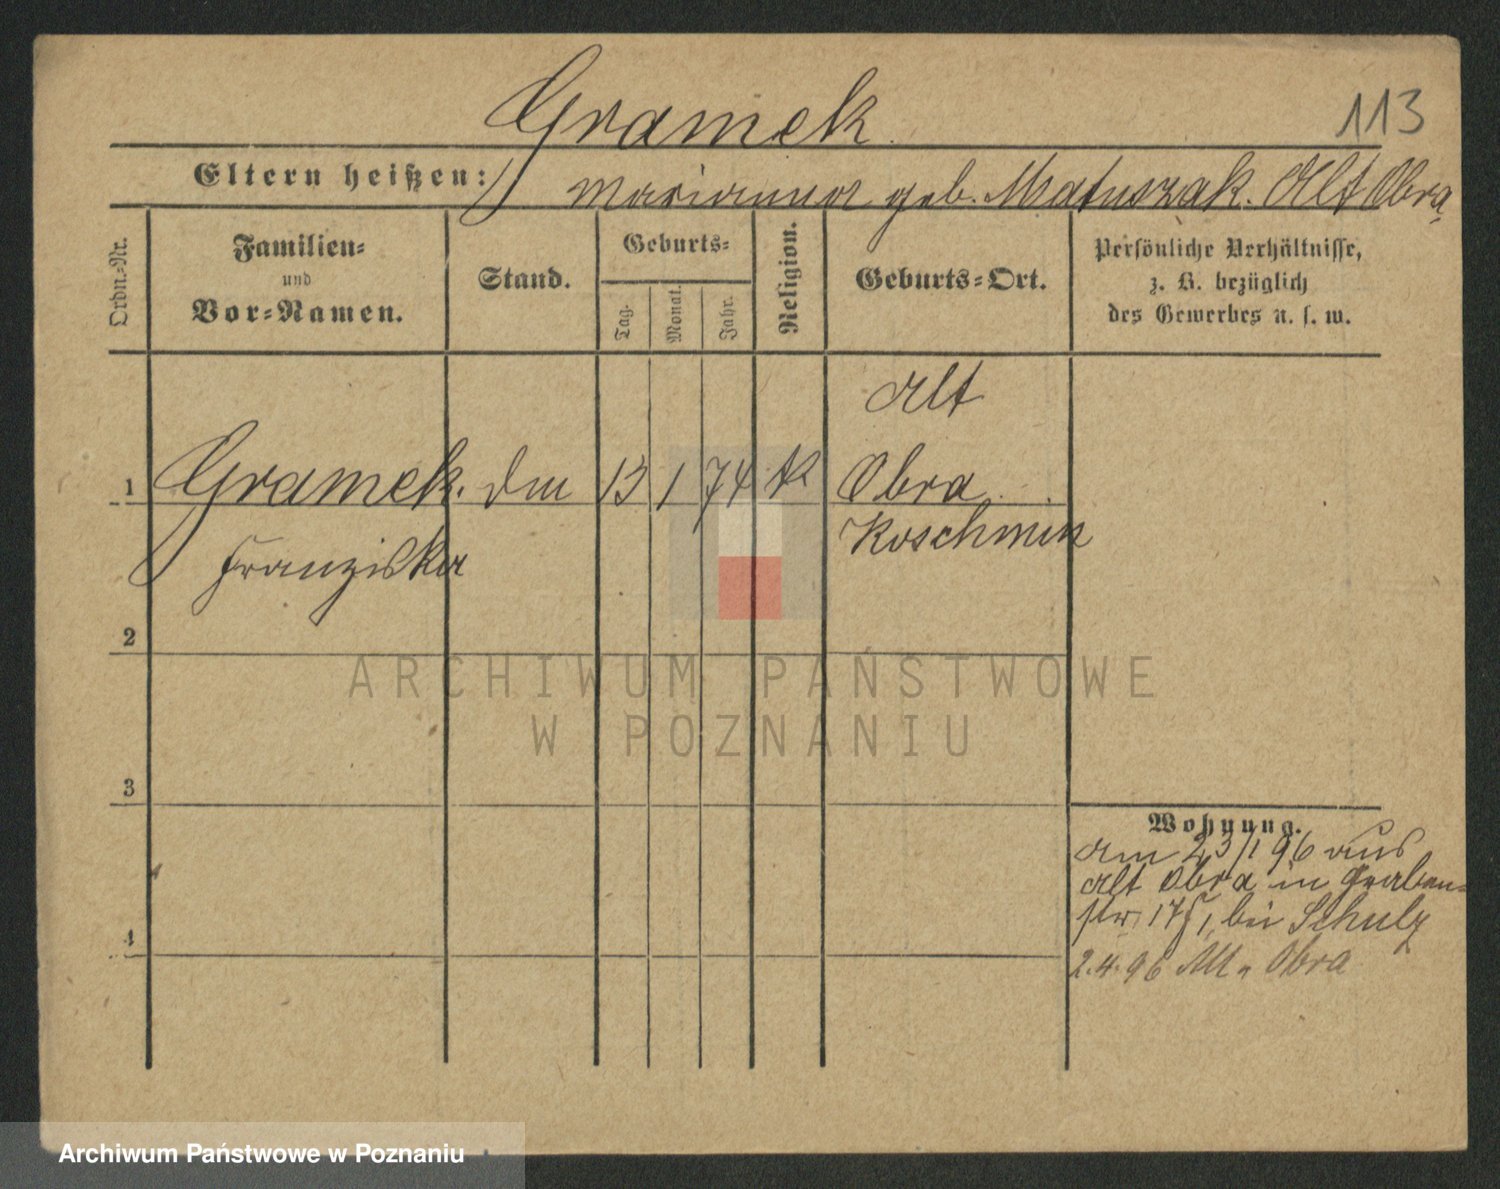 Gramek
113
Eltern heißen:
Marianna geb. Matuszak. Alt Obra
Ordn.-Nr.
Familien-
und
Vor-Namen.
Stand.
Geburts-
Tag.
Monat.
Jahr.
Religion.
Geburts-Ort.
Persönliche Verhältnisse,
z. B. bezüglich
des Gewerbes u. s. w.
Alt
1 Gramek. 13 1 74 k Obra
Franziska
Koschmin
2
3
4
Wohnung.
am 23/1 96 aus
Alt Obra in Graben-
str. bei Schulz
2.4.96 Alt-Obra
ARCHIWUM PAŃSTWOWE
W POZNANIU
Archiwum Państwowe w Poznaniu